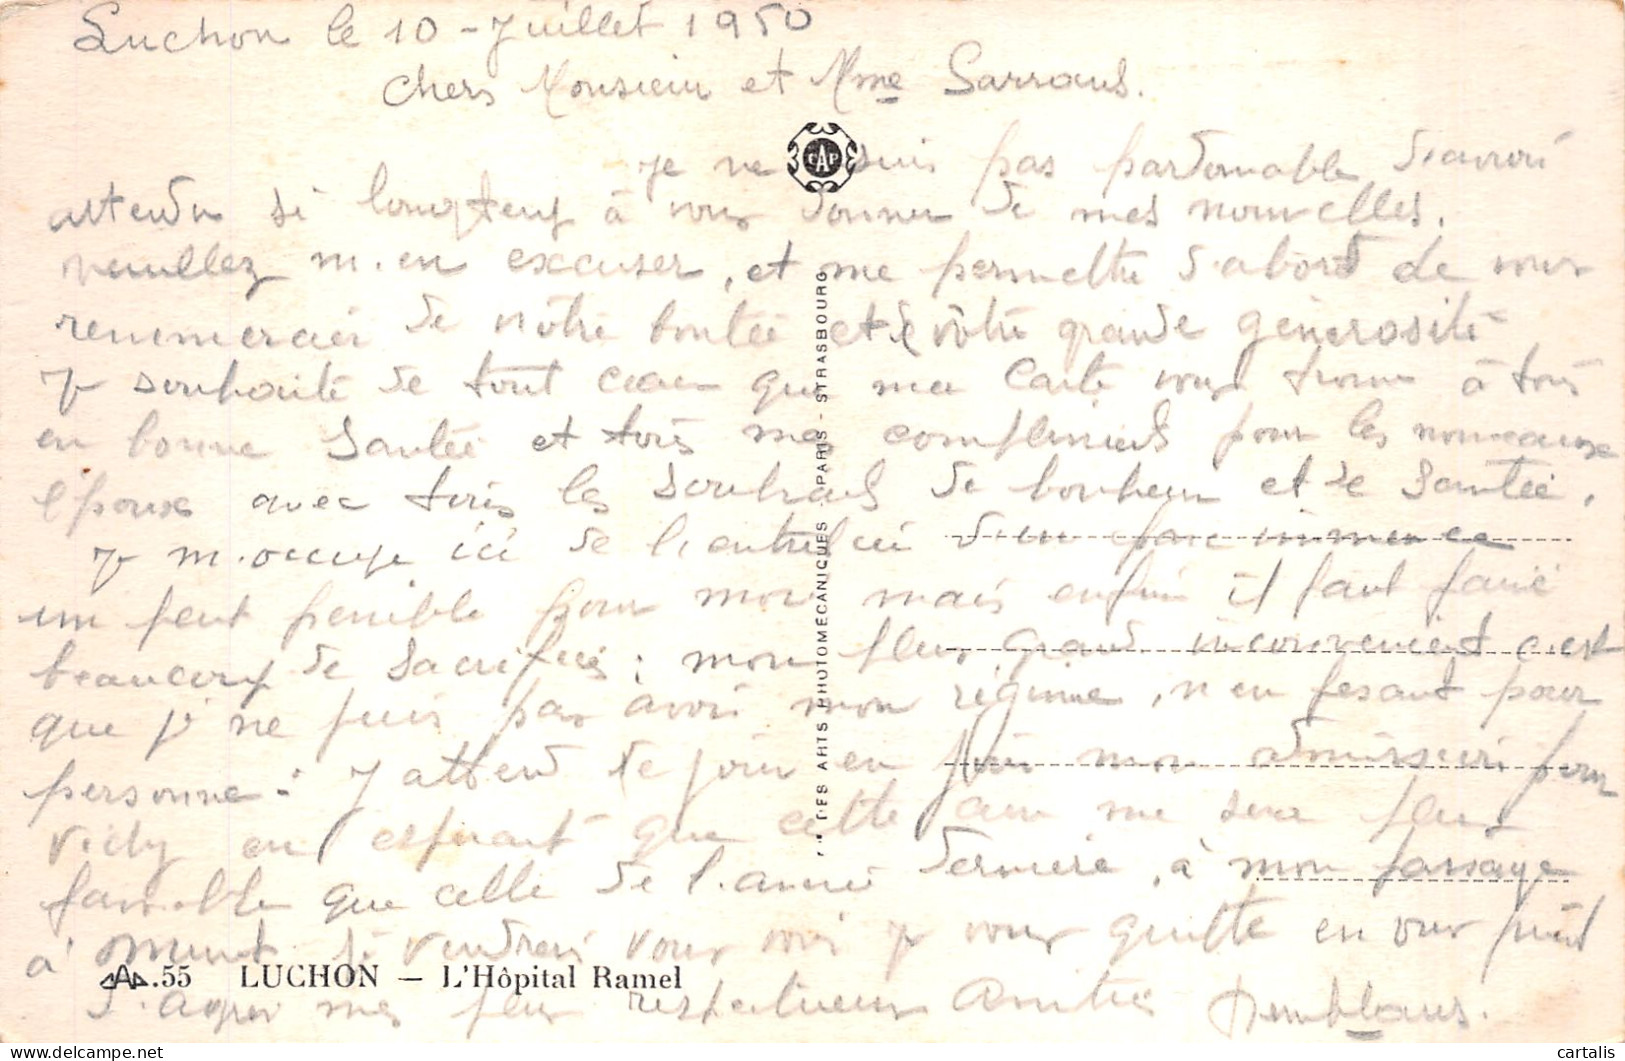 Luchon le 10 - Juillet 1950
Chers Monsieur et Mme Sarraus.
CAP
je ne suis pas pardonnable d'avoir
attendu si longtemps à vous donner de mes nouvelles.
veuillez m'en excuser, et me permettre d'abord de vous
renmercier de vôtre bontée et de vôtre grande génerosité
Je souhaite de tout coeur que ma carte vous trouve à tous
en bonne Santée et tous mes compliments pour les nouveaux
époux avec tous les souhaits de bonheur et de Santée.
Je m'occupe ici de l'entretien d'un parc immence
un peut penible pour moi mais enfin il faut faire
beaucoup de Sacrifices; mon plus grand inconvenient c'est
que je ne puis pas avoir mon régime, n'en fesant pour
personne. J'attend de jour en jour mon admission pour
Vichy en esperant que cette cure me sera plus
favorable que celle de l'année derniere, à mon passage
à je viendrai vous voir je vous quitte en vous
d'agréer mes plus respectueux Amitie
LES ARTS PHOTOMÉCANIQUES - PARIS - STRASBOURG
.55 LUCHON — L'Hôpital Ramel
cartalis